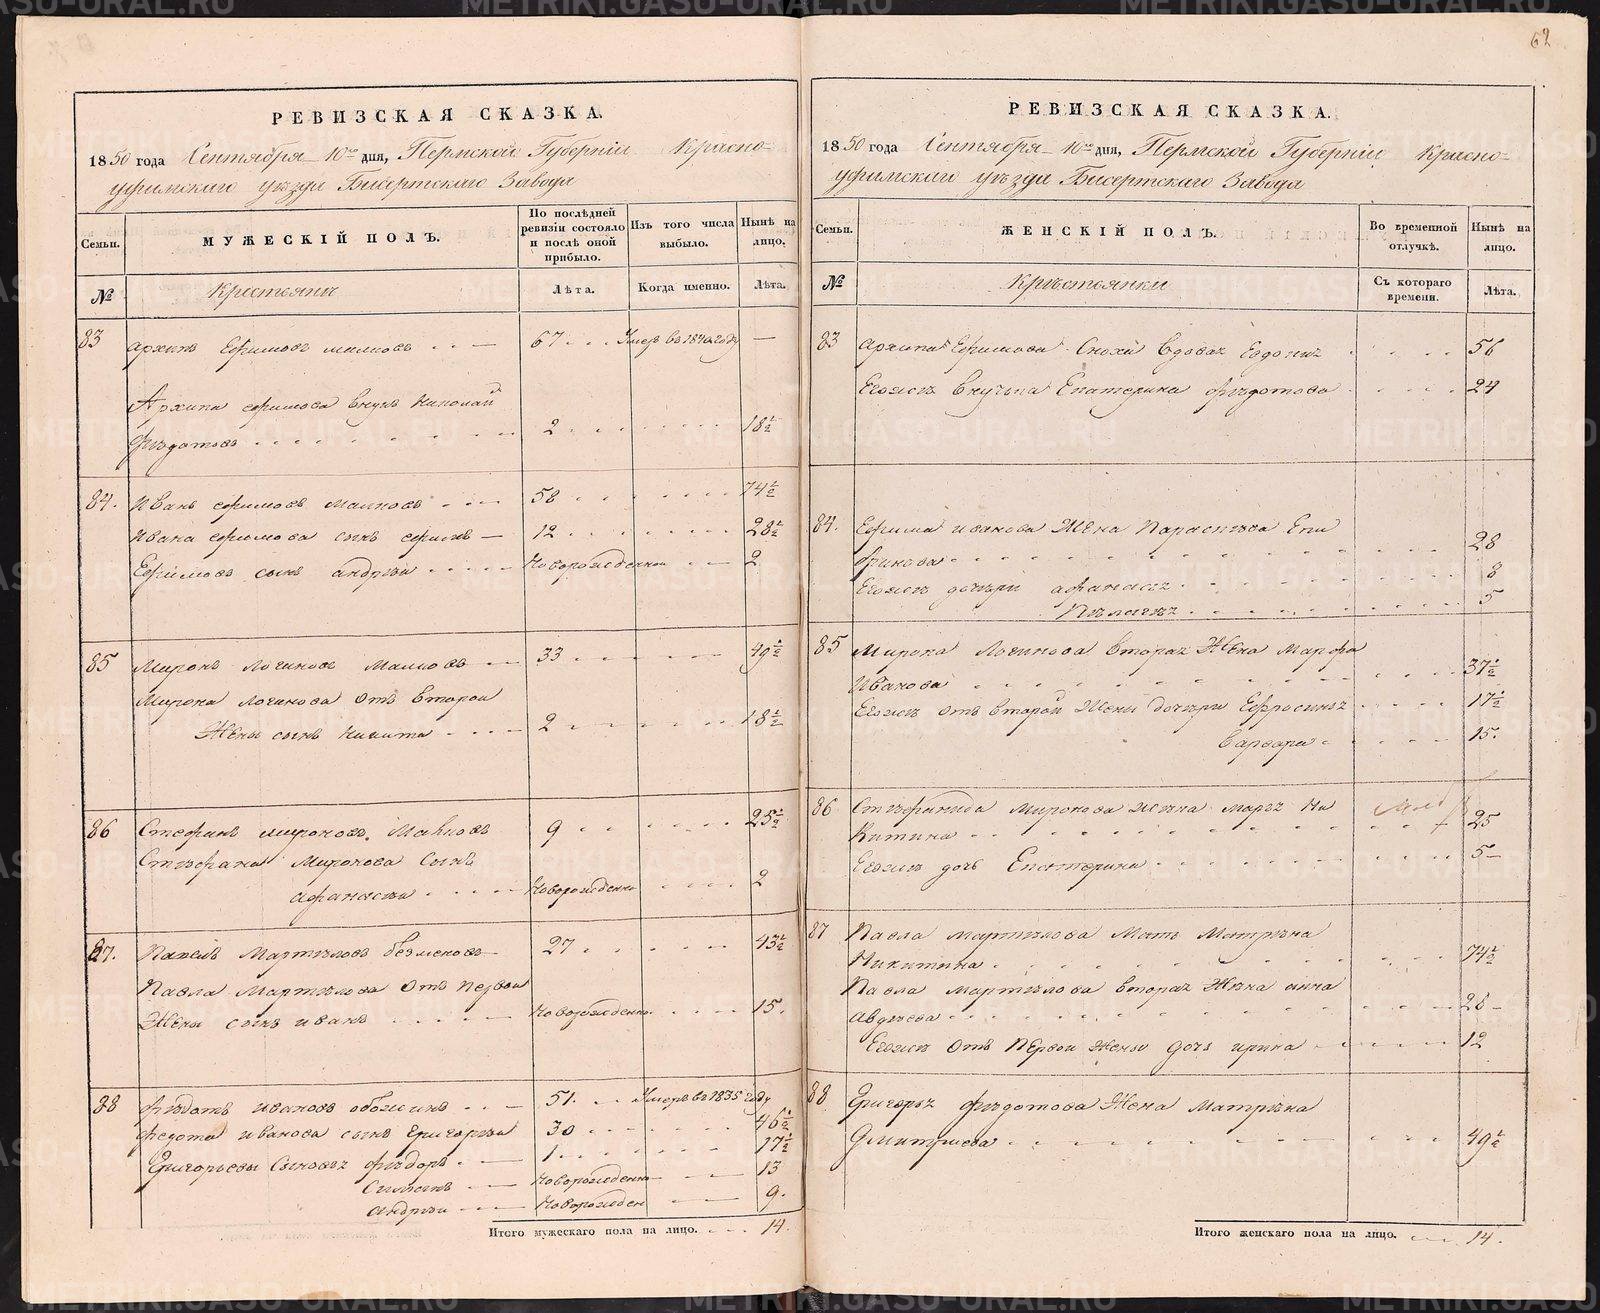 62
РЕВИЗСКАЯ СКАЗКА.
1850 года Сентября 10го дня, Пермской Губернiи Красно-
уфимскаго уѣзда Бисертскаго Завода
Семьи.
МУЖЕСКІЙ ПОЛЪ.
По послѣдней ревизіи состояло и послѣ оной прибыло.
Изъ того числа выбыло.
Нынѣ на лицо.
№
Крестьяне
Лѣта.
Когда именно.
Лѣта.
83 Архипъ Ефимовъ Малковъ 67 Умеръ въ 1840 году —
Архипа Ефимова внукъ Николай
Ѳедотовъ 2 18½
84. Иванъ Ефимовъ Малковъ 58 74½
Ивана Ефимова сынъ Ефимъ 12 28½
Ефимовъ сынъ Андрѣй Новорожденной 2
85 Миронъ Логиновъ Малковъ 33 49½
Мирона Логинова отъ второй
Жены сынъ Никита 2 18½
86 Стефанъ Мироновъ Малковъ 9 25½
Стѣфана Миронова Сынъ
Афанасѣй Новорожденно 2
87. Павелъ Мартѣловъ Безменовъ 27 43½
Павла Мартѣлова Отъ Первой
Жены сынъ Иванъ Новорожденно 15.
88 Фѣдотъ Ивановъ 51. Умеръ въ 1835 году
Федота Иванова сынъ Григорѣй 30 46½
Григорьевы Сыновья Фѣдоръ 1 17½
Симонъ Новорожденно 13
Андрѣй Новорожден 9.
Итого мужескаго пола на лицо. 14.
РЕВИЗСКАЯ СКАЗКА.
1850 года Сентября 10го дня, Пермской Губернiи Красно-
уфимскаго уѣзда Бисертскаго Завода
Семьи.
ЖЕНСКІЙ ПОЛЪ.
Во временной отлучкѣ.
Нынѣ на лицо.
№
Крѣстьянки
Съ котораго времени.
Лѣта.
83 Архипа Ефимова Сноха Вдова Евдокия 56
Егожъ Внучька Екатерина Фѣдотова 24
84. Ефима Иванова Жена Параскѣва
28
Егожъ дочѣри Афанасья 8
Пѣлагѣя 5
85 Мирона Логинова Вторая Жена Марфа
Иванова 37½
Егожъ отъ второй Жены дочѣри Ефросинья 17½
Варвара 15.
86 Стѣфанида Миронова жѣна Марья Ни
Китина 25
Егожъ дочь Екатерина 5
87 Павла Мартѣлова Мать Матрѣна
Никитина 74½
Павла Мартѣлова вторая Жѣна Анна
Авдѣева 28
Егожъ Отъ Первой Жены дочь Ирина 12
88 Григорья Фѣдотова Жена Матрѣна
Дмитриева 49½
Итого женскаго пола на лицо. 14.
METRIKI.GASO-URAL.RU